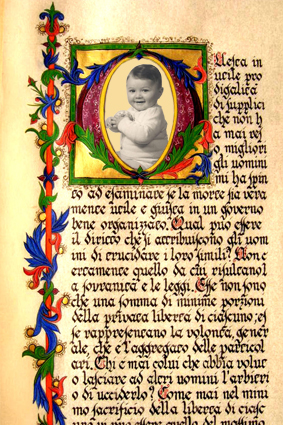 Questa in
utile pro
digalità
di supplici
che non h
a mai res
o migliori
gli uomini
mi ha spin
to ad esaminare se la morte sia vera
mente utile e giusta in un governo
bene organizato. Qual può essere
il diritto che si attribuiscono gli uom
ini di trucidare i loro simili? Non c
ertamente quello da cui risulta l
a sovranità e le leggi. Esse non sono
che una somma di minime porzioni
della privata libertà di ciascuno; es
se rappresentano la volontà gener
ale, che è l'aggregato delle particol
ari. Chi è mai colui che abbia volut
o lasciare ad altri uomini l'arbitri
o di ucciderlo? Come mai nel mini
mo sacrificio della libertà di ciasc
uno vi può essere quello del massimo